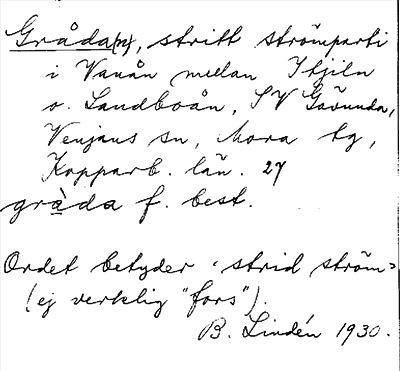 Gråda(n), stritt strömparti
i Vanån mellan Itjiln
o. Landboån, SV Gävunda,
Venjans sn, Mora tg,
Kopparb. län. 27
gràda f. best.
Ordet betyder 'strid ström'
(ej verklig "fors").
B. Lindén 1930.